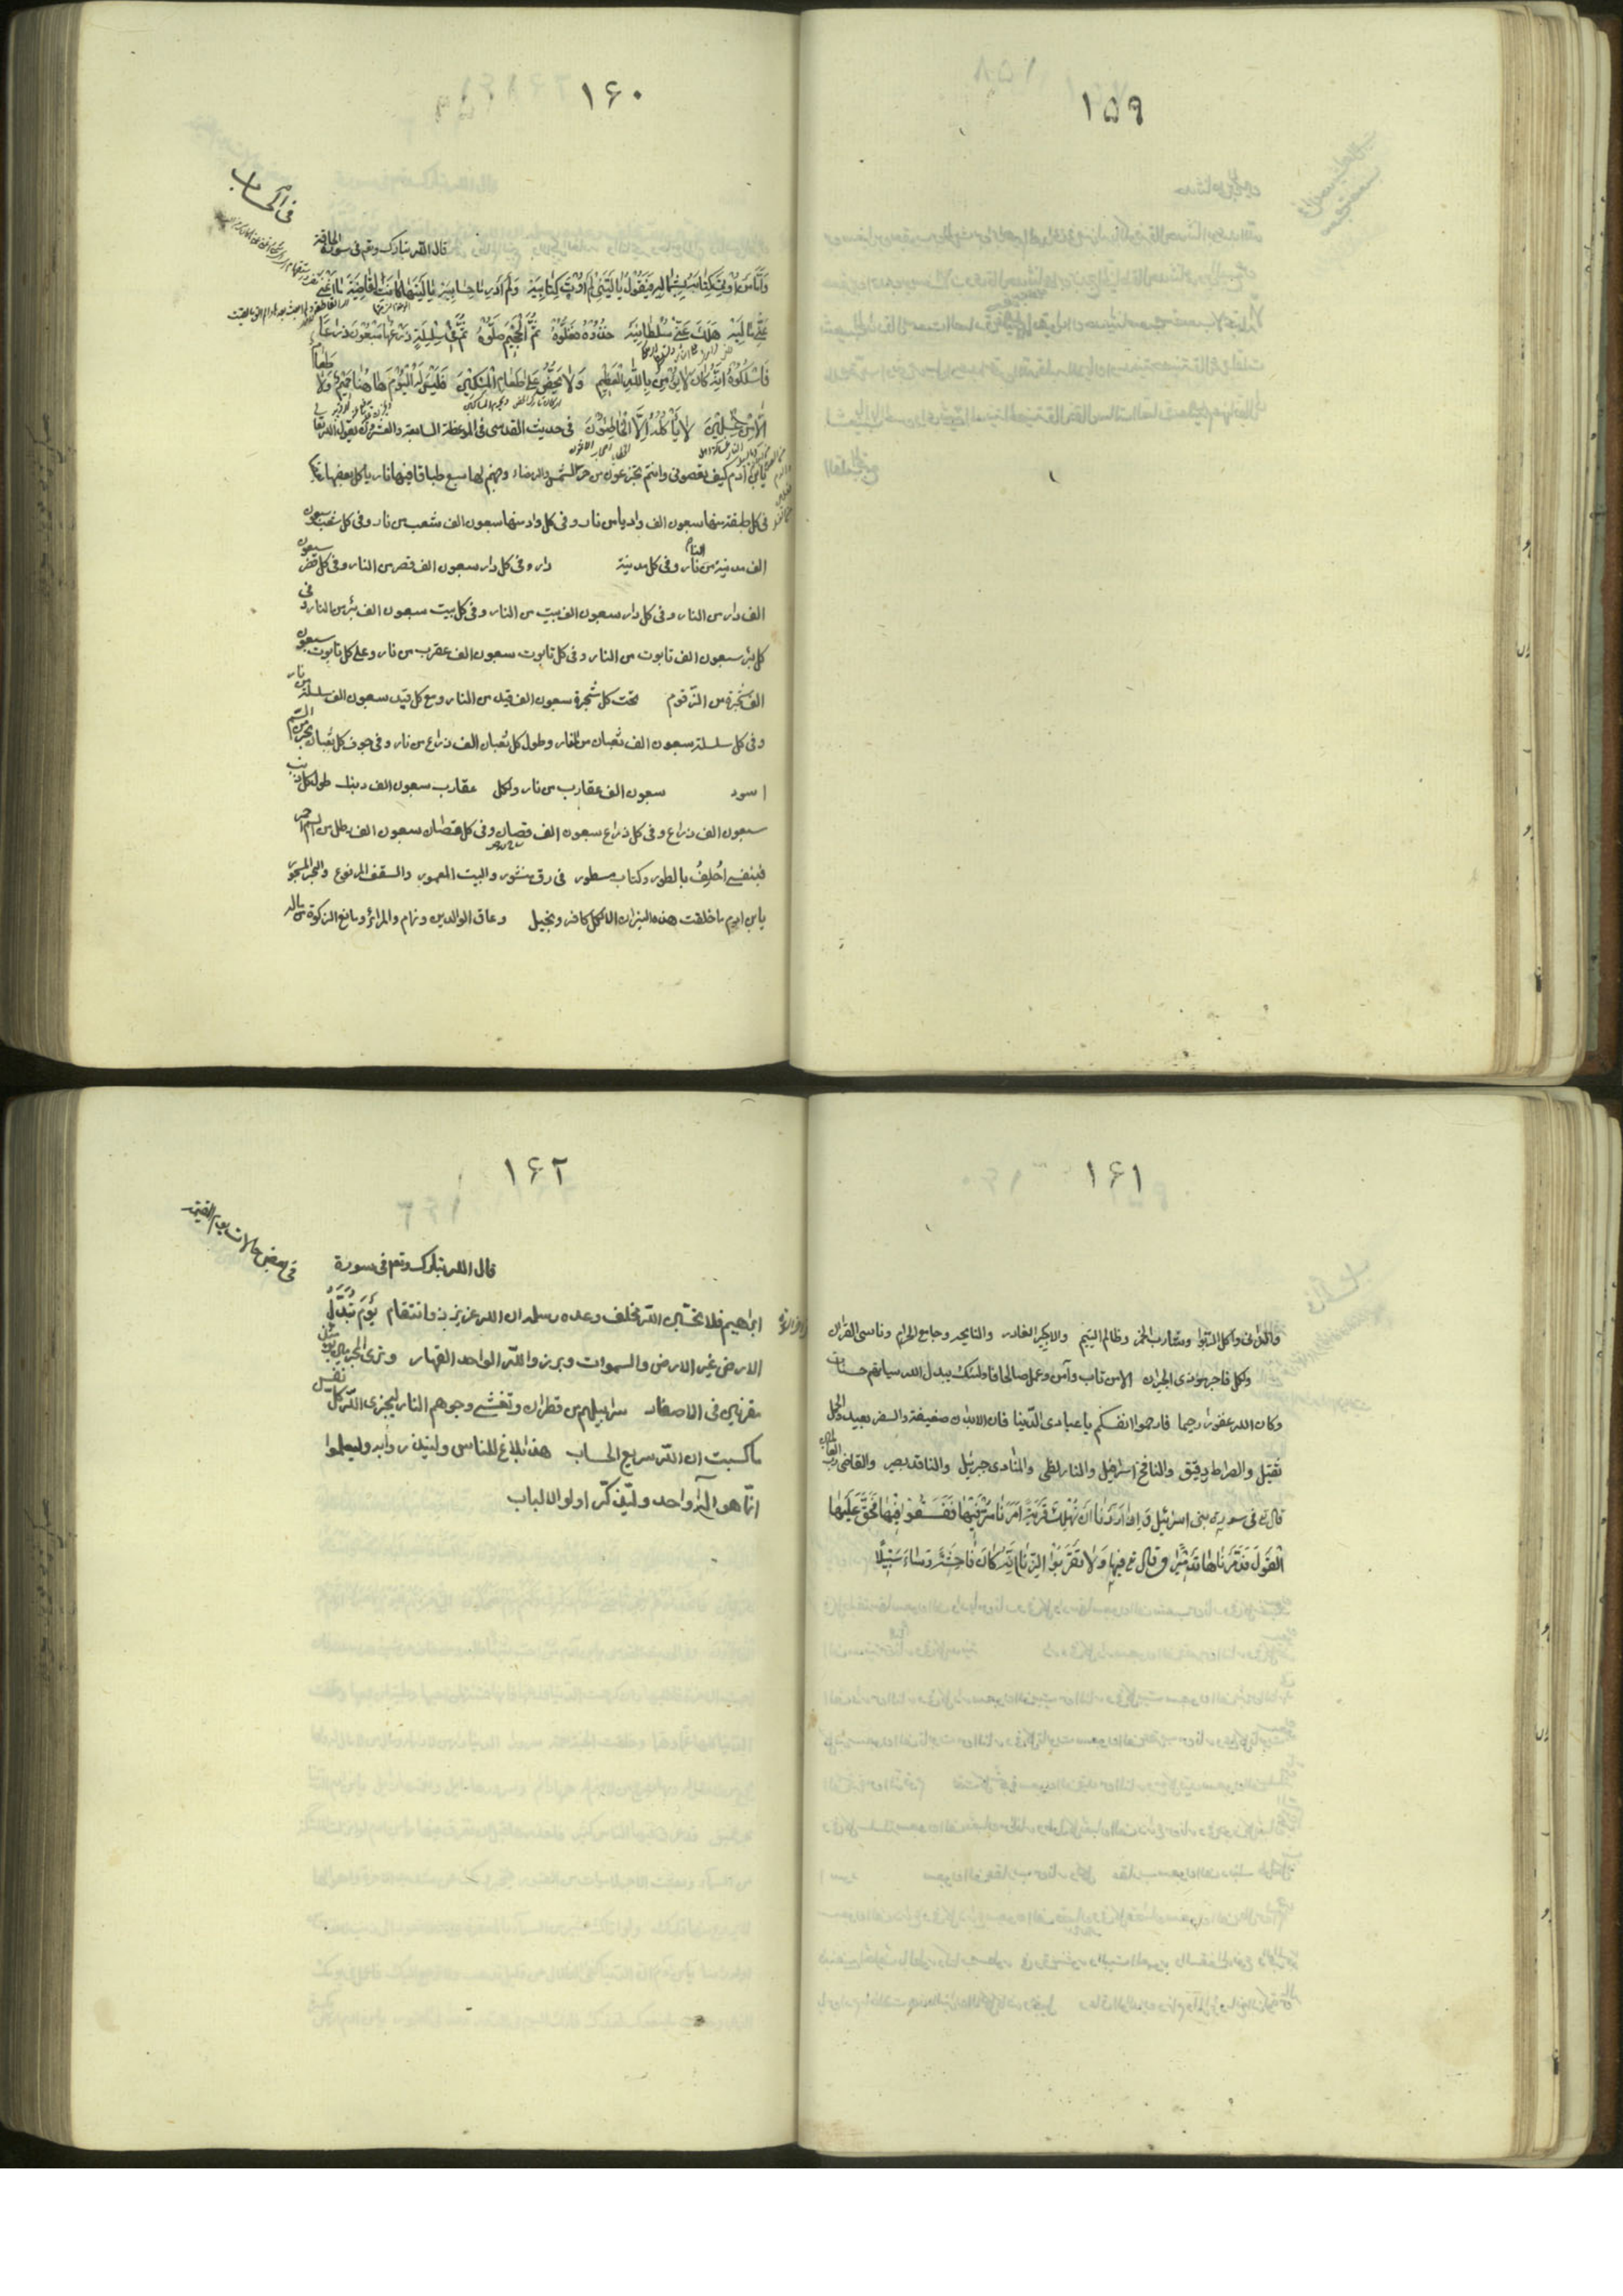 ١٥٩
١۶٠
قال الله تبارك وتعالى فى سورة الحاقة
وَاَمّٰا مَنْ اُوتِىَ كِتٰابَهُ بِشِمٰالِهِ فَيَقُولُ يٰا لَيْتَنِى لَمْ اُوتَ كِتٰابِيَهْ وَلَمْ اَدْرِ مٰا حِسٰابِيَهْ يٰا لَيْتَهٰا كٰانَتِ الْقٰاضِيَةَ مٰا اَغْنىٰ
عَنّى مٰالِيَهْ هَلَكَ عَنّى سُلْطٰانِيَهْ خُذُوهُ فَغُلُّوهُ ثُمَّ الْجَحِيمَ صَلُّوهُ ثُمَّ فِى سِلْسِلَةٍ ذَرْعُهٰا سَبْعُونَ ذِرٰاعًا
فَاسْلُكُوهُ اِنَّهُ كٰانَ لاٰ يُؤْمِنُ بِاللّٰهِ الْعَظِيمِ وَلاٰ يَحُضُّ عَلىٰ طَعٰامِ الْمِسْكِينِ فَلَيْسَ لَهُ الْيَوْمَ هٰاهُنٰا حَمِيمٌ وَلاٰ طَعٰامٌ
اِلاّٰ مِنْ غِسْلِينٍ لاٰ يَأْكُلُهُ اِلاَّ الْخٰاطِئُونَ فى حديث القدسى فى الموعظة السابعة والعشرون يقول الله تعالى
يا بنى آدم كيف تعصونى وانتم تجزعون من حر الشمس والرمضاء وجهنم لها سبع طباق فيها نار يأكل بعضها بعضا
فى كل طبقة منها سبعون الف واد من نار وفى كل واد منها سبعون الف شعب من نار وفى كل شعب سبعون
الف مدينة من نار وفى كل مدينة دار وفى كل دار سبعون الف قصر من النار وفى كل قصر سبعون
الف دار من النار وفى كل دار سبعون الف بيت من النار وفى كل بيت سبعون الف بئر من النار وفى
كل بئر سبعون الف تابوت من النار وفى كل تابوت سبعون الف عقرب من نار وعلى كل تابوت سبعون
الف شجرة من الزقوم تحت كل شجرة سبعون الف قيد من النار ومع كل قيد سبعون الف سلسلة من نار
وفى كل سلسلة سبعون الف ثعبان من النار وطول كل ثعبان الف ذراع من نار وفى جوف كل ثعبان بحر من السم
اسود سبعون الف عقارب من نار ولكل عقارب سبعون الف ذنب طول كل ذنب
سبعون الف ذراع وفى كل ذراع سبعون الف وفى كل سبعون الف رطل من السم
فبنفسى اُحلِفُ بالطور وكتاب مسطور فى رق منشور والبيت المعمور والسقف المرفوع والبحر المسجور
يا بن ادم ما خلقت هذه النيران الا لكل كافر وبخيل وعاق الوالدين ونمام والمرائى ومانع الزكوة من ماله
١۶١
والزانى وآكل الربوا وشارب الخمر وظالم اليتيم والاجير الغادر والنايحه وجامع الحرام وناسى القرآن
ولكل فاجر وموذى الجيران الا من تاب وآمن وعمل صالحا فاولئك يبدل الله سيئاتهم حسنات
وكان الله غفورا رحيما فارحموا انفسكم يا عبادى الدنيا فان الابدان ضعيفة والسفر بعيد والحمل
ثقيل والصراط دقيق والنافخ اسرافيل والنار لظى والمنادى جبرئيل والناقد بصير والقاضى رب العالمين
قال تع فى سورة بنى اسرائيل وَاِذٰا اَرَدْنٰا اَنْ نُهْلِكَ قَرْيَةً اَمَرْنٰا مُتْرَفِيهٰا فَفَسَقُوا فِيهٰا فَحَقَّ عَلَيْهٰا
الْقَوْلُ فَدَمَّرْنٰاهٰا تَدْمِيرًا وقال تع فيها وَلاٰ تَقْرَبُوا الزِّنٰا اِنَّهُ كٰانَ فٰاحِشَةً وَسٰاءَ سَبِيلاً
١۶٢
فى بعض حالات يوم القيمة
قال الله تبارك وتعالى فى سورة
ابراهيم فلا تحسبن الله مخلف وعده رسله ان الله عزيز ذو انتقام يَوْمَ تُبَدَّلُ
الارض غير الارض والسموات وبرزوا لله الواحد القهار وترى المجرمين يومئذ
مقرنين فى الاصفاد سرابيلهم من قطران وتغشى وجوههم النار ليجزى الله كل نفس
ما كسبت ان الله سريع الحساب هذا بلاغ للناس ولينذروا به وليعلموا
انما هو اله واحد وليذكر اولوا الالباب